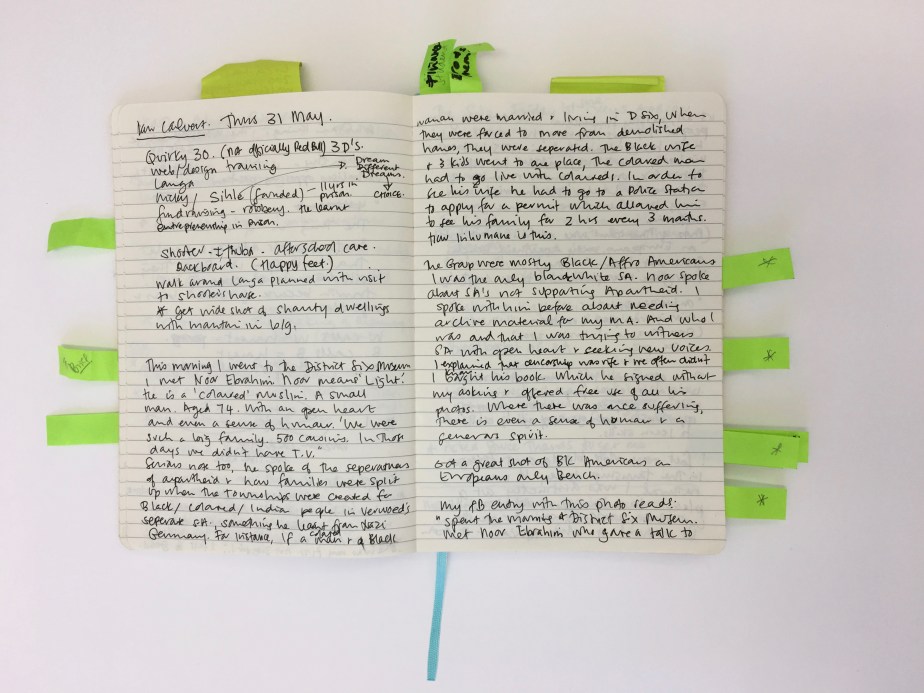 Ian Calvert. Thurs 31 May.
Quirky 30. (not officially Red Bull) 3 D's.
web/design training D. Dream
Different
Dreams.
Langa
/ Sihle (founded) - 11 yrs in prison. choice.
fundraising - robbery. He learnt
entrepreneurship in prison.
- afterschool care.
(Happy feet.)
walk around Langa planned with visit
to house.
* Get wide shot of shanty dwellings
with mountain in b/g.
This morning I went to the District Six Museum
I met Noor Ebrahim Noor means 'Light'.
He is a 'coloured' muslim. A small
man. Aged 74. With an open heart
and even a sense of humour. 'We were
such a big family. 500 cousins. In those
days we didn't have T.V."
Serious note too, he spoke of the seperatness
of apartheid & how families were split
up when the townships were created for
Black/coloured/India people in Verwoed's
seperate SA. Something he learnt from Nazi
Germany. For instance, if a colored man & a Black
woman were married & living in D Six, when
they were forced to move from demolished
homes, they were seperated. The Black wife
& 3 kids went to one place, The colored man
had to go live with coloureds. In order to
see his wife he had to go to a Police Station
to apply for a permit which allowed him
to see his family for 2 hrs every 3 months.
How inhumane is this.
The Group were mostly Black/Affro Americans
I was the only blonde white SA. Noor spoke
about SA's not supporting Apartheid. I
spoke with him before about needing
archive material for my MA. And who I
was and that I was trying to witness
SA with open heart & seeking new voices.
I explained that censorship was rife & we often didn't know
I bought his book. Which he signed without
my asking & offered free use of all his
photos. Where there was once suffering,
there is even a sense of humour & a
generous spirit.
Got a great shot of Blk Americans on
Europeans only Bench.
My FB entry with this photo reads:
"Spent the morning at District Six Museum.
Met Noor Ebrahim who gave a talk to